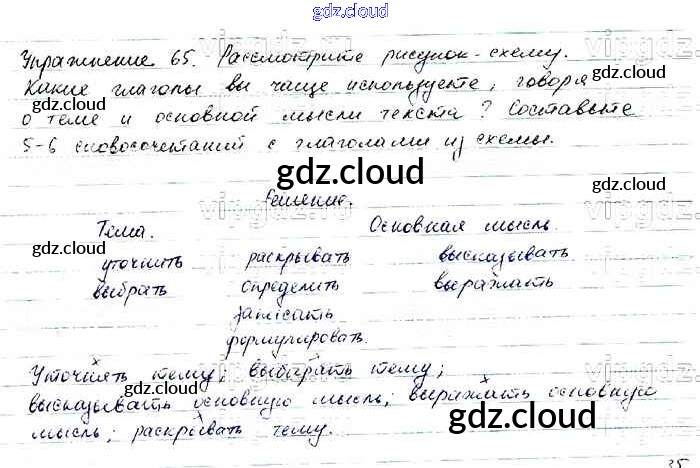 gdz.cloud
Упражнение 65. Рассмотрите рисунок-схему.
Какие глаголы вы чаще используете, говоря
о теме и основной мысли текста? Составьте
5-6 словосочетаний с глаголами из схемы.
gdz.cloud
Решение.
Тема. Основная мысль.
уточнить раскрывать высказывать
выбрать определить выражать
записать
формулировать.
Уточнять тему; выбирать тему;
высказывать основную мысль; выражать основную
мысль; раскрывать тему.
gdz.cloud
35